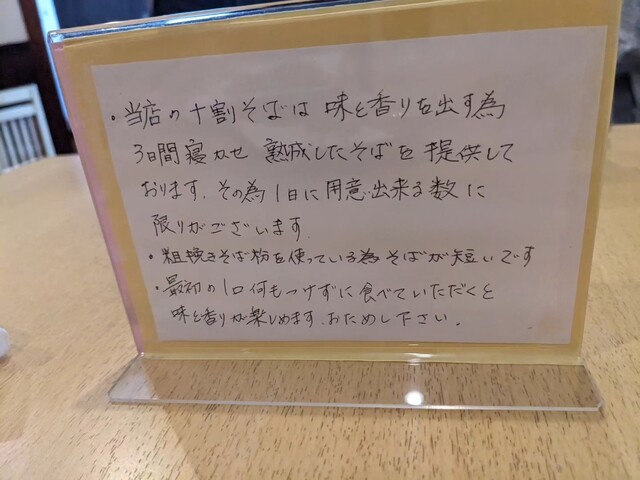 ・当店の十割そばは 味と香りを出す為
3日間寝かせ 熟成したそばを 提供して
おります. その為 1日に用意出来る数に
限りがございます.
・粗挽きそば粉を使っている為そばが短いです
・最初の1口何もつけずに食べていただくと
味と香りが楽しめます.おためし下さい。